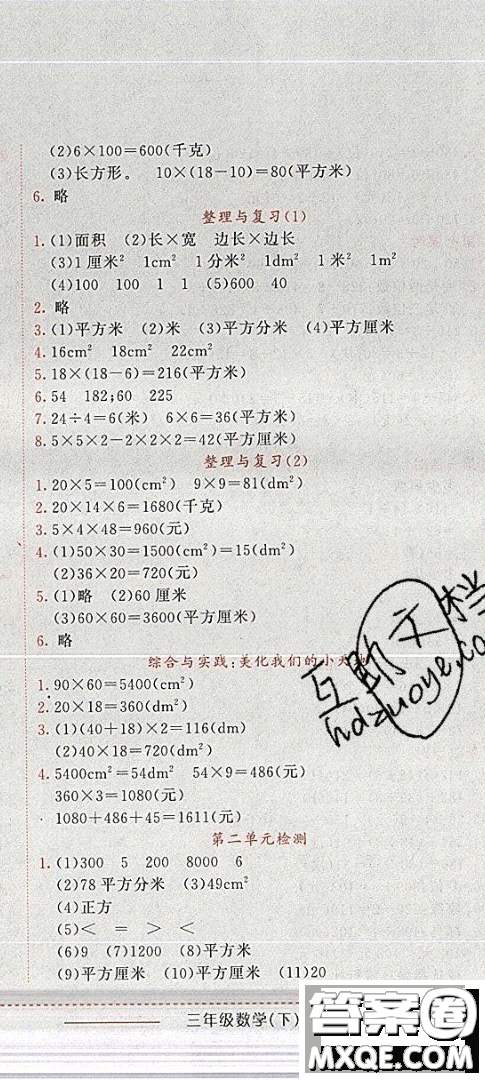 (2)6×100=600(千克)
(3)长方形。 10×(18-10)=80(平方米)
6. 略
整理与复习(1)
1. (1)面积 (2)长×宽 边长×边长
(3)1厘米² 1cm² 1分米² 1dm² 1米² 1m²
(4)100 100 1 1 (5)600 40
2. 略
3. (1)平方米 (2)米 (3)平方分米 (4)平方厘米
4. 16cm² 18cm² 22cm²
5. 18×(18-6)=216(平方米)
6. 54 182;60 225
7. 24÷4=6(米) 6×6=36(平方米)
8. 5×5×2-2×2×2=42(平方厘米)
整理与复习(2)
1. 20×5=100(cm²) 9×9=81(dm²)
2. 20×14×6=1680(千克)
3. 5×4×48=960(元)
4. (1)50×30=1500(cm²)=15(dm²)
(2)36×20=720(元)
5. (1)略 (2)60厘米
(3)60×60=3600(平方厘米)
6. 略
综合与实践:美化我们的小天地
1. 90×60=5400(cm²)
2. 20×18=360(dm²)
3. (1)(40+18)×2=116(dm)
(2)40×18=720(dm²)
4. 5400cm²=54dm² 54×9=486(元)
360×3=1080(元)
1080+486+45=1611(元)
互助文档
hdzuoye.co
第二单元检测
1. (1)300 5 200 8000 6
(2)78平方分米 (3)49cm²
(4)正方
(5)< = > <
(6)9 (7)1200 (8)平方米
(9)平方厘米 (10)平方厘米 (11)20
三年级数学(下)
答案圈
MXQE.COM